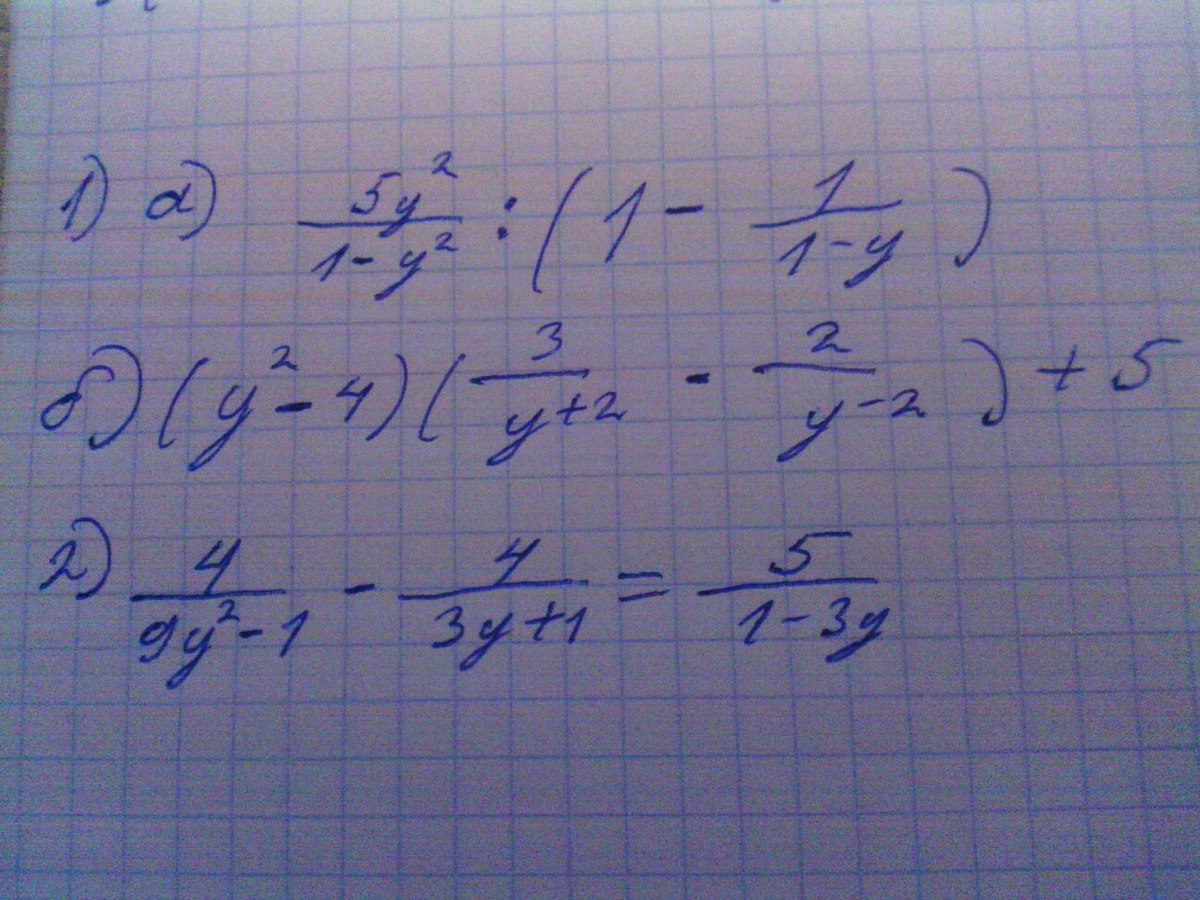 1) а) \frac{5y^2}{1-y^2} : (1 - \frac{1}{1-y})
б) (y^2 - 4)(\frac{3}{y+2} - \frac{2}{y-2}) + 5
2) \frac{4}{9y^2-1} - \frac{4}{3y+1} = \frac{5}{1-3y}